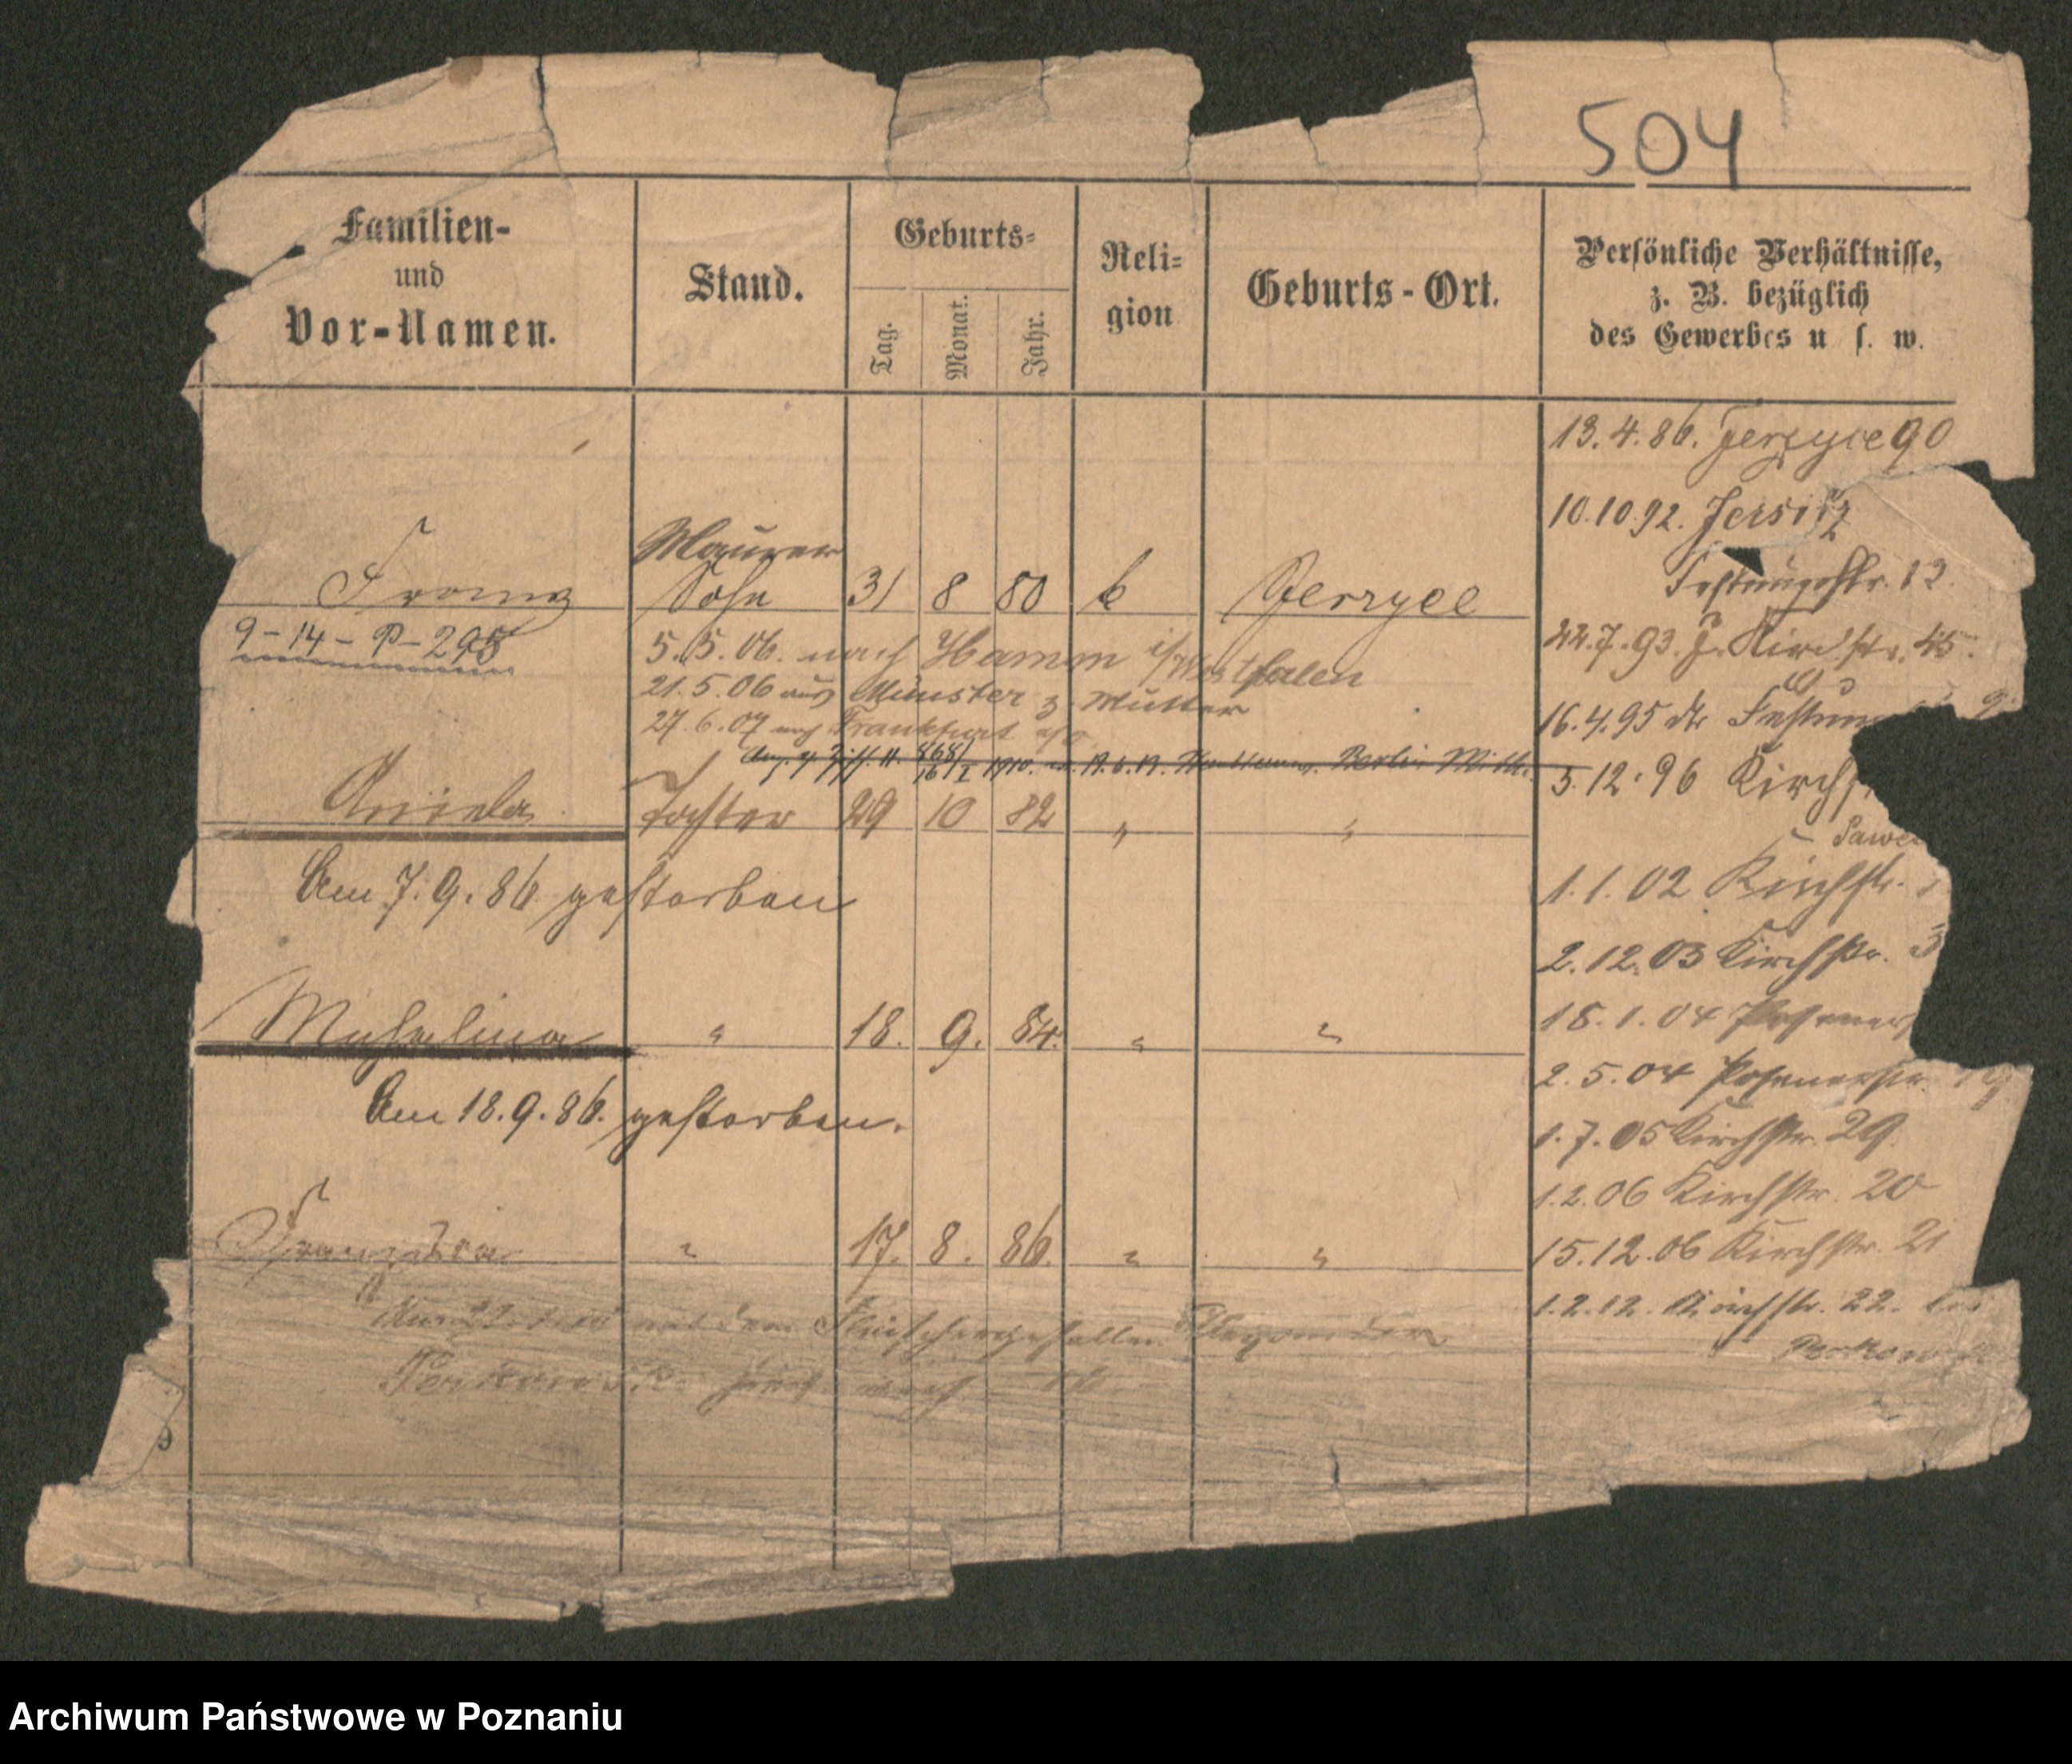 504
Familien-
und
Vor-Namen.
Stand.
Geburts-
Tag.
Monat.
Jahr.
Reli-
gion
Geburts-Ort.
Persönliche Verhältnisse,
z. B. bezüglich
des Gewerbes u s. w.
13.4.86. Jerzyce 90
10.10.92. Jersitz
Festungsstr. 12.
22.7.93. J. Kirchstr. 45.
16.4.95
5.12.96 Kirchst
1.1.02 Kirchstr.
2.12.03 Kirchstr. 3
18.1.04 Posener
2.5.04 Posenerstr. 19
1.7.05 Kirchstr. 29.
1.2.06 Kirchstr. 20
15.12.06 Kirchstr. 21
1.2.12. Kirchstr. 22.
Franz
Maurer
Sohn 31 8 80 k Jerzyce
9-14-P-295
5.5.06. nach Hamm i/Westfalen
21.5.06 aus Münster z. Mutter
27.6.07 nach Frankfurt a/o
Berlin
Aniela Tochter 29 10 82 " "
Am 7.9.86 gestorben
Michalina " 18. 9. 84. " "
Am 18.9.86. gestorben.
Franziska " 17. 8. 86. " "
mit dem Fleischergesellen
Archiwum Państwowe w Poznaniu